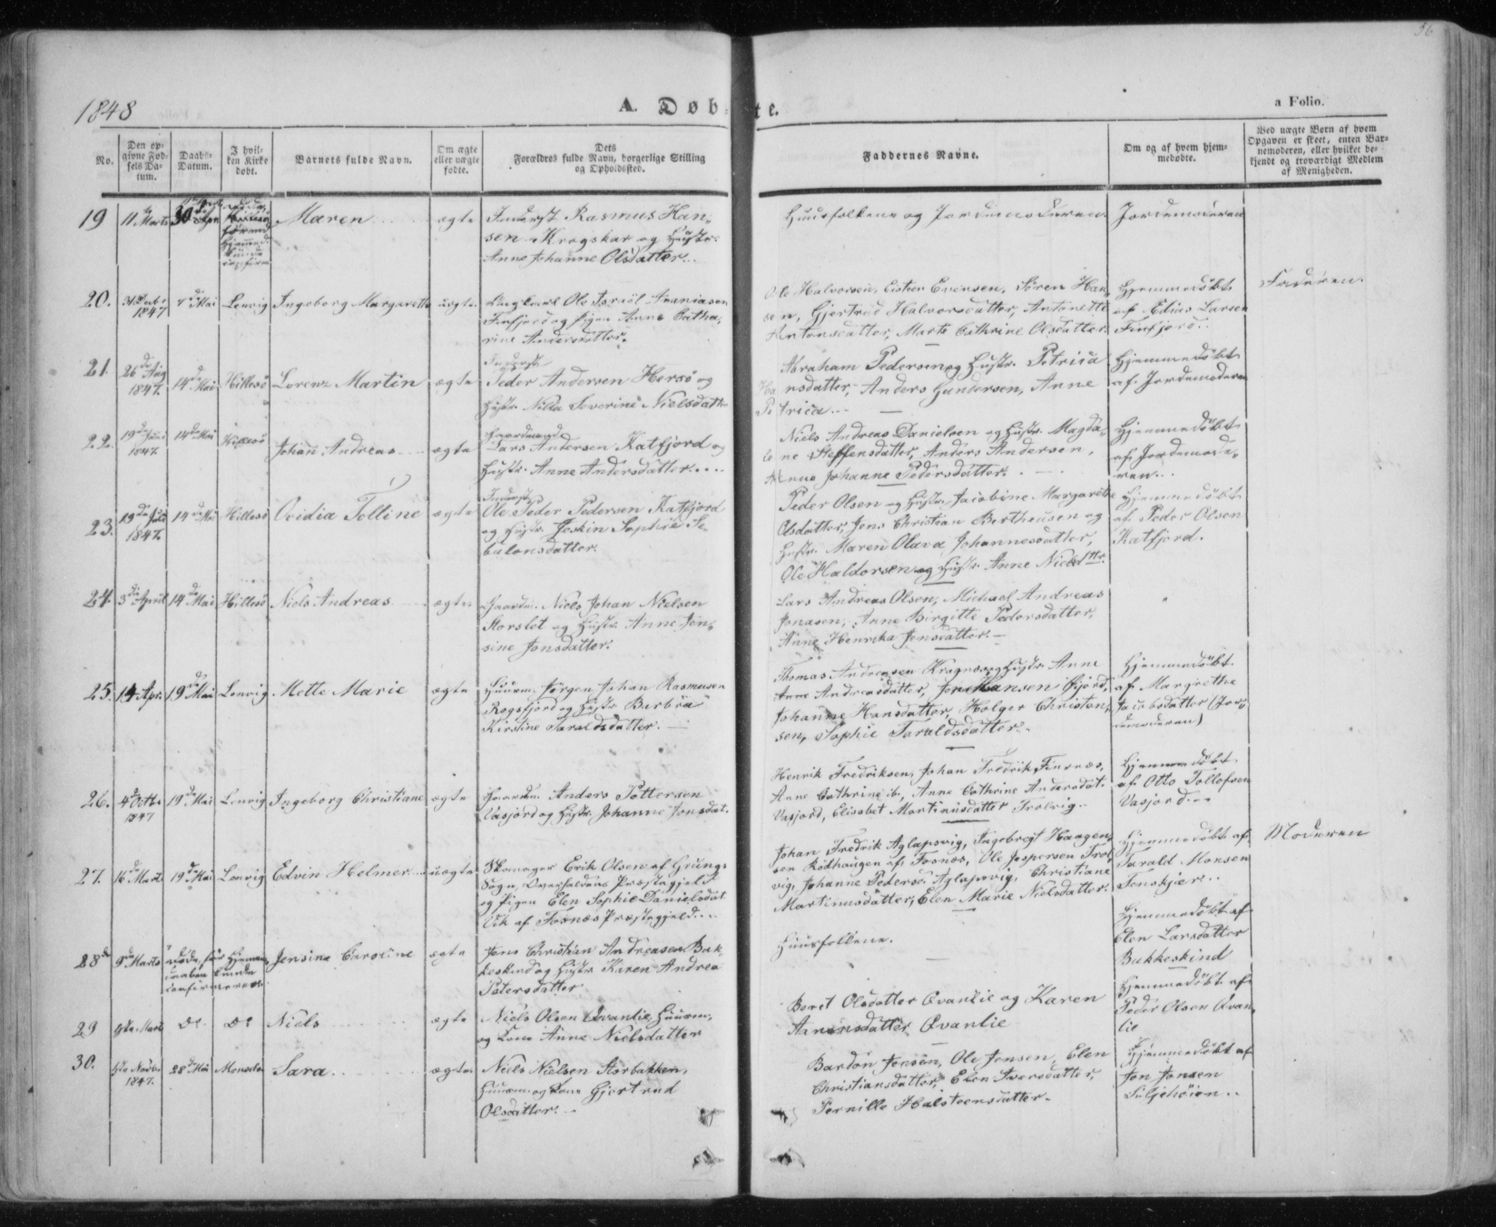 56
1848
A. Døbte.
a Folio.
No.
Den op-
givne Fød-
sels Da-
tum.
Daabs-
Datum.
I hvil-
ken Kirke
døbt.
Barnets fulde Navn.
Om ægte
eller uægte
fødte.
Dets
Forældres fulde Navn, borgerlige Stilling
og Opholdssted.
Faddernes Navne.
Om og af hvem hjem-
medøbte.
Ved uægte Børn af hvem
Opgaven er skeet, enten Bar-
nemoderen, eller hvilket be-
kjendt og troværdigt Medlem
af Menigheden.
19
11 Marts
30
Maren
ægte
Inderst Rasmus Han-
sen Krogskar og Hustr.
Anne Johanne Olsdatter.
Huusfolkene og Jordemoderen.
Jordemoderen
20.
1847
7de Mai
Lenvig
Ingeborg Margarethe
uægte
Ungkarl Ole Israel Ananiasen
Finfjord og Pigen Anne Catha-
rine Andersdatter.
Ole Halvorsen, Eisten Evensen, Sören Han-
sen, Gjertrud Halvorsdatter, Antonette
Antonsdatter, Marte Cathrine Olsdatter
Hjemmedöbt
af Edias Larsen
Finfjord.
Faderen
21.
26de Aug
1847.
14de Mai
Hillesö
Lorenz Martin
ægte
Inderst
Peder Andersen Hersö og
Hustr. Nilla Severine Nielsdatter
Abraham Pedersen og Hustr. Petricia
Hansdatter, Anders Gundersen, Anne
Petricia
Hjemmedöbt
af Jordemoderen
22.
19de Juni
1847
14de Mai
Hillesö
Johan Andreas
ægte
Gaardmand
Lars Andersen Katfjord og
Hustr. Anne Andersdatter
Niels Andreas Danielsen og Hustr. Magda-
lene Steffensdatter, Anders Andersen,
Anne Johanne Pedersdatter.
Hjemmedöbt
af Jordemode-
ren
23.
19de Juli
1847.
14de Mai
Hillesö
Ovidia Tolline
ægte
Inderst
Ole Peder Pedersen Katfjord
og Hustr. Jeskin Sophie Se-
bulonsdatter.
Peder Olsen og Hustr. Jacobine Margarethe
Olsdatter, Jens Christian Bertheusen og
Hustr. Maren Olava Johannesdatter,
Ole Haldorsen og Hustr. Anne Nielsdtr.
Hjemmedöbt
af Peder Olsen
Katfjord.
24.
3die April
14de Mai
Hillesö
Niels Andreas
ægte
Gaardm. Niels Johan Nielsen
Storslet og Hustr. Anne Jen-
sine Jonsdatter.
Lars Andreas Olsen, Michael Andreas
Jonasen, Anne Birgitte Pedersdatter,
Anne Henrika Jensdatter.
"
25.
14 Apr.
19de Mai
Lenvig
Mette Marie
ægte
Huusm. Jørgen Johan Rasmusen
Rogsfjord og Hustr. Birbroa
Kirstine Taraldsdatter.
Thomas Andreasen Krognes og Hustr. Anne
Anne Andreasdatter, Jens Hansen Gjord,
Johanne Hansdatter, Holger Christen-
sen, Sophie Taraldsdatter.
Hjemmedöbt
af Margrethe
Jacobsdatter (Jor-
demoderen)
26.
4de Octbr
1847
19de Mai
Lenvig
Ingeborg Christiane
ægte
Gaardm. Anders Pettersen
Vasjord og Hustr. Johanne Jonsdat.
Henrik Fredriksen, Johan Fredrik Finsnes,
Anne Cathrine ib., Anne Cathrine Andersdat.
Vasjord, Elisabet Martinusdatter Trolvig.
Hjemmedöbt
af Otto Tollefsen
Vasjord
27.
16de Marts
19de Mai
Lenvig
Edvin Helmer
uægte
Skomager Erik Olsen af Grungs
Sogn, Overhaldens Præstegjeld
og Pigen Elen Sophie Danielsdat
Vik af Fosnes Præstegjeld
Johan Fredrik Aglapsvig, Ingebregt Haagen-
sen Rödhaugen af Fosnes, Ole Jespersen Trol-
vig, Johanne Pederse. Aglapsvig, Christiane
Martinusdatter, Elen Marie Nielsdatter.
Hjemmedöbt af
Tarald Monsen
Tenskjær
Moderen
28
9de Marts
döde, för Hjemme-
daaben kunde
confirmeres
Jensine Caroline
ægte
Jens Christian Andreasen Bak-
keskind og Hustr. Karen Andrea
Petersdatter
Huusfolkene.
Hjemmedöbt af
Elen Larsdatter
Bakkeskind
29
9de Marts
Do
Do
Niels
ægte
Niels Olsen Qvanlie, Huusm.
og Kone Anne Nielsdatter
Beret Olsdatter Qvanlie og Karen
Arnesdatter Qvanlie
Hjemmedöbt af
Peder Olsen Qvan-
lie
30.
Novbr
1847.
28de Mai
Sara
ægte
Niels Nielsen Storbakken,
Huusm. og Kone Gjertrud
Olsdatter.
Bardon Jensen, Ole Jensen, Elen
Christiansdatter, Elen Iversdatter,
Pernille Halsteensdatter.
Hjemmedöbt af
Jon Jonsen
Liljehöien